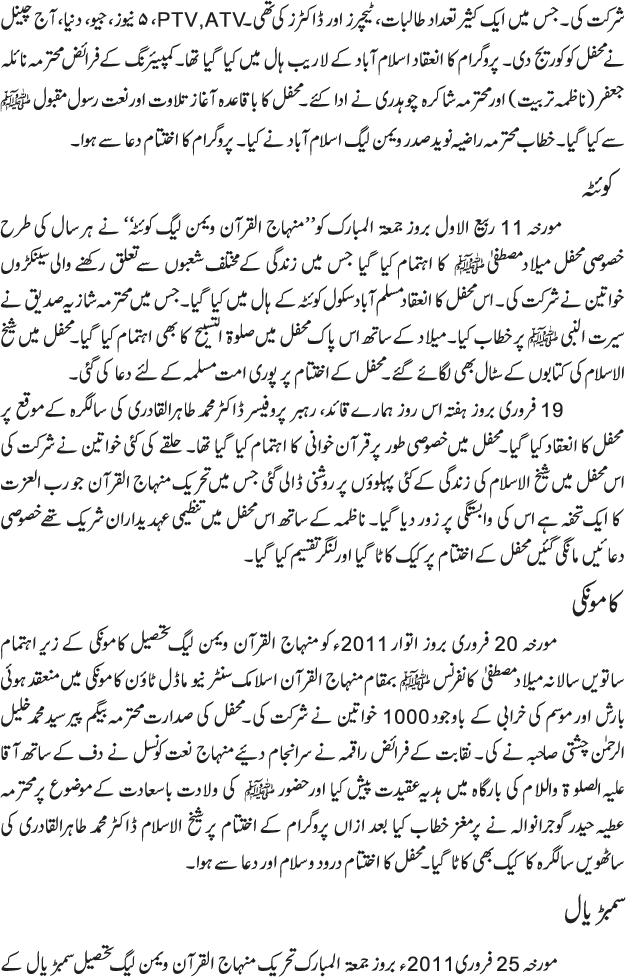 شرکت کی۔ جس میں ایک کثیر تعداد طالبات، ٹیچرز اور ڈاکٹرز کی تھی۔ PTV,ATV، ۵ نیوز، جیو، دنیا، آج چینل
نے محفل کو کوریج دی۔ پروگرام کا انعقاد اسلام آباد کے لاریب ہال میں کیا گیا تھا۔ کمپیئرنگ کے فرائض محترمہ نائلہ
جعفر (ناظمہ تربیت) اور محترمہ شاکرہ چوہدری نے ادا کئے۔ محفل کا باقاعدہ آغاز تلاوت اور نعت رسول مقبول ﷺ
سے کیا گیا۔ خطاب محترمہ راضیہ نوید صدر ویمن لیگ اسلام آباد نے کیا۔ پروگرام کا اختتام دعا سے ہوا۔
کوئٹہ
مورخہ 11 ربیع الاول بروز جمعۃ المبارک کو ’’منہاج القرآن ویمن لیگ کوئٹہ‘‘ نے ہر سال کی طرح
خصوصی محفل میلاد مصطفیٰ ﷺ کا اہتمام کیا گیا جس میں زندگی کے مختلف شعبوں سے تعلق رکھنے والی سینکڑوں
خواتین نے شرکت کی۔ اس محفل کا انعقاد مسلم آباد سکول کوئٹہ کے ہال میں کیا گیا۔ جس میں محترمہ شازیہ صدیق نے
سیرت النبی ﷺ پر خطاب کیا۔ میلاد کے ساتھ اس پاک محفل میں صلوۃ التسبیح کا بھی اہتمام کیا گیا۔ محفل میں شیخ
الاسلام کی کتابوں کے سٹال بھی لگائے گئے۔ محفل کے اختتام پر پوری امت مسلمہ کے لئے دعا کی گئی۔
19 فروری بروز ہفتہ اس روز ہمارے قائد، رہبر پروفیسر ڈاکٹر محمد طاہر القادری کی سالگرہ کے موقع پر
محفل کا انعقاد کیا گیا۔ محفل میں خصوصی طور پر قرآن خوانی کا اہتمام کیا گیا تھا۔ حلقے کی کئی خواتین نے شرکت کی
اس محفل میں شیخ الاسلام کی زندگی کے کئی پہلوؤں پر روشنی ڈالی گئی جس میں تحریک منہاج القرآن جو رب العزت
کا ایک تحفہ ہے اس کی وابستگی پر زور دیا گیا۔ ناظمہ کے ساتھ اس محفل میں تنظیمی عہدیداران شریک تھے خصوصی
دعائیں مانگی گئیں محفل کے اختتام پر کیک کاٹا گیا اور لنگر تقسیم کیا گیا۔
کامونکی
مورخہ 20 فروری بروز اتوار 2011ء کو منہاج القرآن ویمن لیگ تحصیل کامونکی کے زیر اہتمام
ساتویں سالانہ میلاد مصطفیٰ کانفرنس ﷺ بمقام منہاج القرآن اسلامک سنٹر نیو ماڈل ٹاؤن کامونکی میں منعقد ہوئی
بارش اور موسم کی خرابی کے باوجود 1000 خواتین نے شرکت کی۔ محفل کی صدارت محترمہ بیگم پیر سید محمد خلیل
الرحمٰن چشتی صاحبہ نے کی۔ نقابت کے فرائض راقمہ نے سرانجام دیئے منہاج نعت کونسل نے دف کے ساتھ آقا
علیہ الصلوۃ واللام کی بارگاہ میں ہدیہ عقیدت پیش کیا اور حضور ﷺ کی ولادت باسعادت کے موضوع پر محترمہ
عطیہ حیدر گوجرانوالہ نے پرمغز خطاب کیا بعد ازاں پروگرام کے اختتام پر شیخ الاسلام ڈاکٹر محمد طاہر القادری کی
ساٹھویں سالگرہ کا کیک بھی کاٹا گیا۔ محفل کا اختتام درود وسلام اور دعا سے ہوا۔
سمبڑیال
مورخہ 25 فروری 2011ء بروز جمعۃ المبارک تحریک منہاج القرآن ویمن لیگ تحصیل سمبڑیال کے